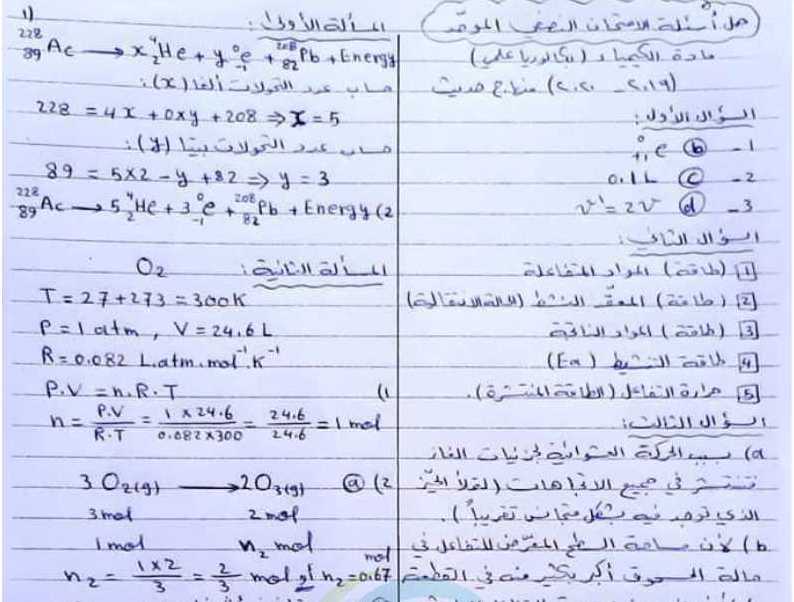 حل أسئلة الامتحان النصفي الموحّد
مادة الكيمياء (بكالوريا علمي)
(٢٠١٩ - ٢٠٢٠) منهاج حديث
السؤال الأول:
1- (b) ⁰₊₁e
2- (c) 0.1 L
3- (d) v' = 2v
السؤال الثاني:
[1] (طاقة) المواد المتفاعلة
[2] (طاقة) المعقّد النشط (الحالة الانتقالية)
[3] (طاقة) المواد الناتجة
[4] طاقة التنشيط (Ea)
[5] حرارة التفاعل (الطاقة المنتشرة).
السؤال الثالث:
a) بسبب الحركة العشوائية لجزيئات الغاز
تنتشر في جميع الاتجاهات (لتملأ الحيّز
الذي توجد فيه بشكل متجانس تقريباً).
b) لأن مساحة السطح المعرّض للتفاعل في
حالة المسحوق أكبر بكثير منه في القطعة
المسألة الأولى:
1) ²²⁸₈₉Ac → x ⁴₂He + y ⁰₋₁e + ²⁰⁸₈₂Pb + Energy
حساب عدد التحولات ألفا (x):
228 = 4x + 0xy + 208 ⇒ x = 5
حساب عدد التحولات بيتا (y):
89 = 5x2 - y + 82 ⇒ y = 3
²²⁸₈₉Ac → 5 ⁴₂He + 3 ⁰₋₁e + ²⁰⁸₈₂Pb + Energy (2
المسألة الثانية: O₂
T = 27 + 273 = 300 K
P = 1 atm , V = 24.6 L
R = 0.082 L.atm.mol⁻¹.K⁻¹
P.V = n.R.T (1
n = P.V / R.T = 1 x 24.6 / 0.082 x 300 = 24.6 / 24.6 = 1 mol
3 O₂(g) → 2 O₃(g) (a) (2
3 mol 2 mol
1 mol n₂ mol
n₂ = 1x2 / 3 = 2/3 mol أو n₂ = 0.67 mol